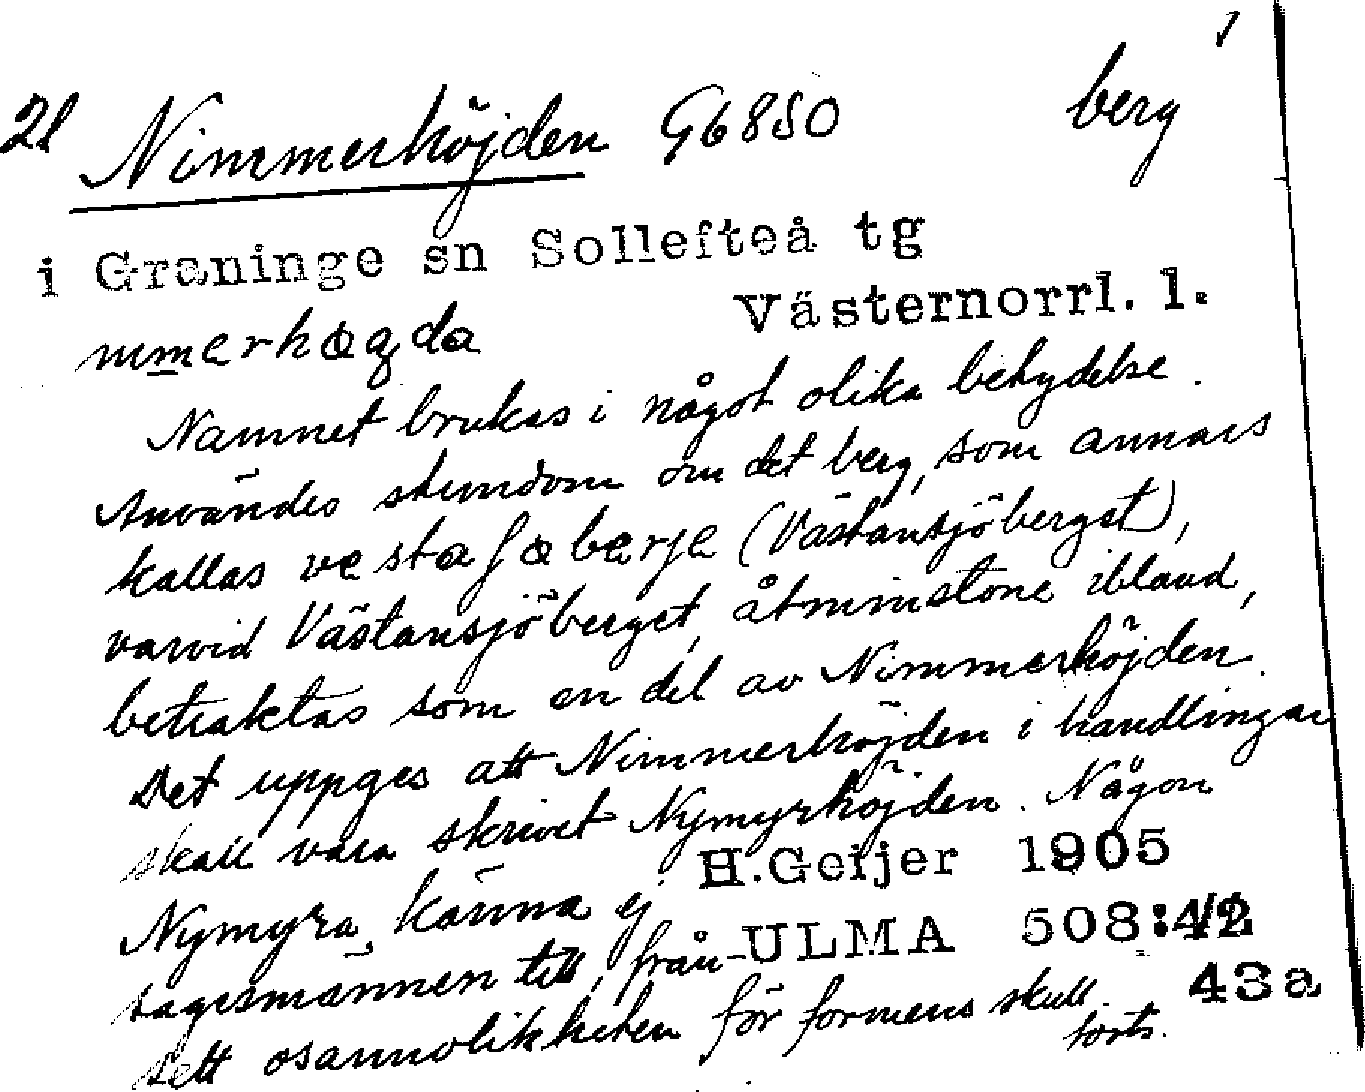 21 Nimmerhöjden G6850 berg
i Graninge sn Sollefteå tg
Västernorrl. l.
Namnet brukas i något olika betydelse.
Användes stundom om det berg, som annars
kallas (Västansjöberget),
varvid Västansjöberget, åtminstone ibland,
betraktas som en del av Nimmerhöjden.
Det uppges att Nimmerhöjden i handlingar
skall vara skrivet Nymyrhöjden. Någon
H. Geijer 1905
Nymyra känna ej
ULMA 508:42
sagesmännen till, från-
43a
sett osannolikheten för formens skull.
forts.